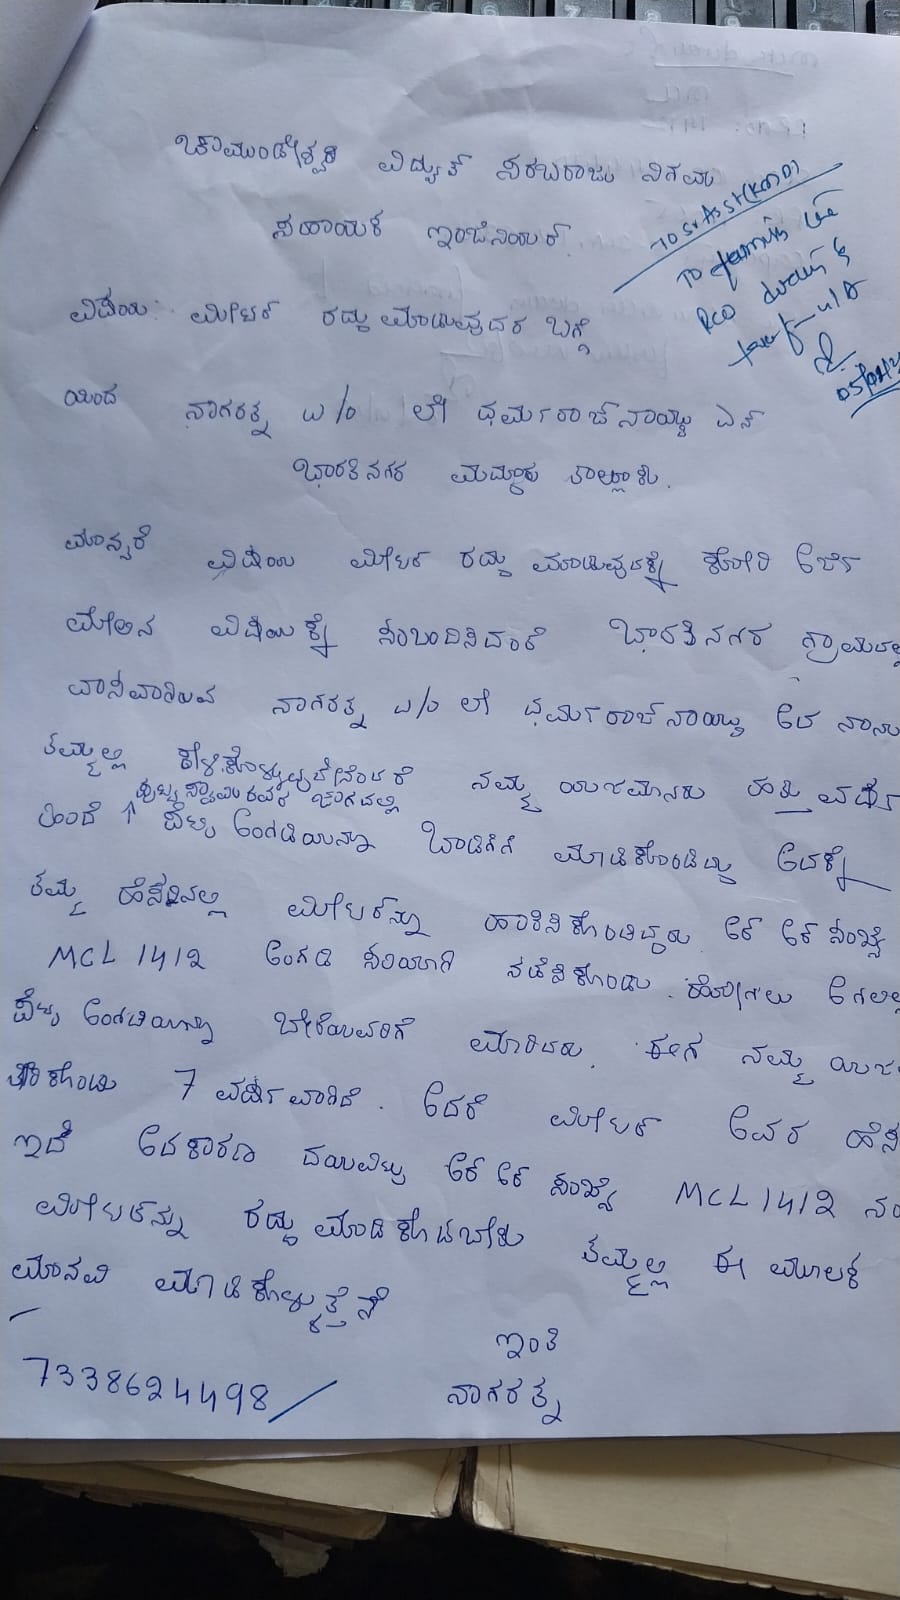 ಚಾಮುಂಡೇಶ್ವರಿ ವಿದ್ಯುತ್ ಸರಬರಾಜು ನಿಗಮ
ಸಹಾಯಕ ಇಂಜಿನಿಯರ್
To Sr Asst (KMD)
To
RCO
05/02/2
ವಿಷಯ: ಮೀಟರ್ ರದ್ದು ಮಾಡುವುದರ ಬಗ್ಗೆ
ಯಿಂದ ನಾಗರತ್ನ w/o ಲೇ ಧರ್ಮರಾಜ್ ನಾಯ್ಡು ಎನ್
ಭಾರತಿನಗರ ಮದ್ದೂರು ತಾಲ್ಲೂಕು.
ಮಾನ್ಯರೆ ವಿಷಯ ಮೀಟರ್ ರದ್ದು ಮಾಡುವುದಕ್ಕೆ ಕೋರಿ ಅರ್ಜಿ
ಮೇಲಿನ ವಿಷಯಕ್ಕೆ ಸಂಬಂದಿಸಿದಂತೆ ಭಾರತಿನಗರ ಗ್ರಾಮದಲ್ಲಿ
ವಾಸವಾಗಿರುವ ನಾಗರತ್ನ w/o ಲೇ ಧರ್ಮರಾಜ್ ನಾಯ್ಡು ಆದ ನಾನು
ತಮ್ಮಲ್ಲಿ ಕೇಳಿಕೊಳ್ಳುವುದೇನೆಂದರೆ ನಮ್ಮ ಯಜಮಾನರು ಹತ್ತು ವರ್ಷ
ಪುಟ್ಟಸ್ವಾಮಿರವರ ಜಾಗದಲ್ಲಿ
ಹಿಂದೆ ಪೆಟ್ಟಿ ಅಂಗಡಿಯನ್ನು ಬಾಡಿಗೆಗೆ ಮಾಡಿಕೊಂಡಿದ್ದು ಅದಕ್ಕೆ
ತಮ್ಮ ಹೆಸರಿನಲ್ಲಿ ಮೀಟರ್‌ನ್ನು ಹಾಕಿಸಿಕೊಂಡಿದ್ದರು. ಆರ್ ಆರ್ ಸಂಖ್ಯೆ
MCL 1412 ಅಂಗಡಿ ಸರಿಯಾಗಿ ನಡೆಸಿಕೊಂಡು ಹೋಗಲು ಆಗಲಿಲ್ಲ
ಪೆಟ್ಟಿ ಅಂಗಡಿಯನ್ನು ಬೇರೆಯವರಿಗೆ ಮಾರಿದರು. ಈಗ ನಮ್ಮ ಯಜ
ತೀರಿಕೊಂಡು 7 ವರ್ಷವಾಗಿದೆ. ಆದರೆ ಮೀಟರ್ ಅವರ ಹೆಸ
ಇದೆ ಆದಕಾರಣ ದಯವಿಟ್ಟು ಆರ್ ಆರ್ ಸಂಖ್ಯೆ MCL 1412 ನಂ
ಮೀಟರ್‌ನ್ನು ರದ್ದು ಮಾಡಿಕೊಡಬೇಕು ತಮ್ಮಲ್ಲಿ ಈ ಮೂಲಕ
ಮಾನವಿ ಮಾಡಿಕೊಳ್ಳುತ್ತೆನೆ
ಇಂತಿ
7338624498/ ನಾಗರತ್ನ